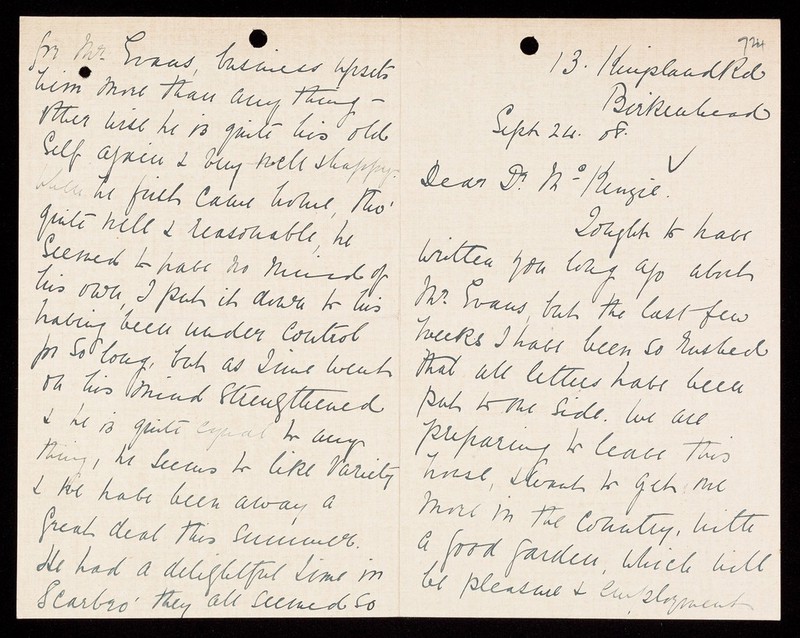 924
13. Kingsland Rd
Birkenhead
Sept 24. 08.
Dear Dr. McKenzie.
I ought to have
written you long ago about
Mr. Evans, but the last few
weeks I have been so rushed
that all letters have been
put to one side. We are
preparing to leave this
house, & want to get one
more in the country, with
a good garden, which will
be pleasure & employment
for Mr. Evans, business upsets
him more than any thing –
other wise he is quite his old
self again & very well & happy.
When he first came home, tho'
quite well & reasonable, he
seemed to have no mind of
his own, I put it down to his
having been under control
for so long, but as time went
on his mind strengthened
& he is quite equal to any
thing, he seems to like variety
& we have been away a
great deal this summer.
He had a delightful time in
Scarbro' they all seemed so